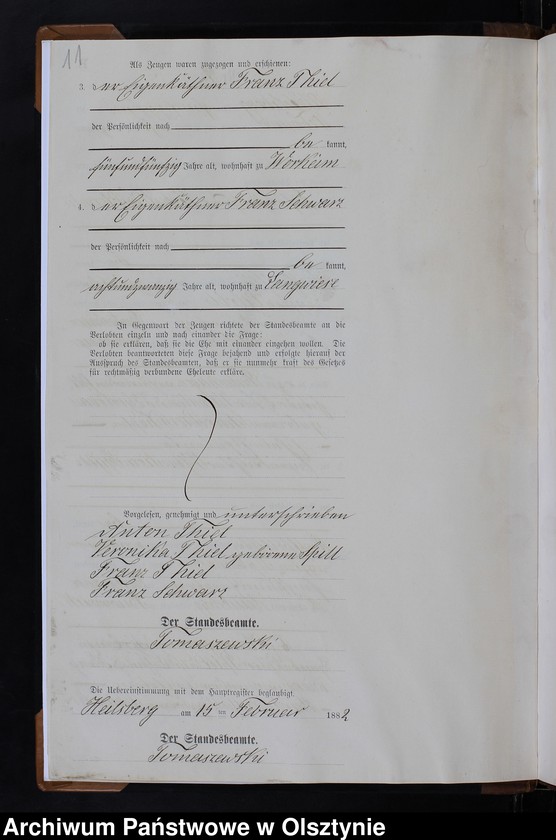 11.
Als Zeugen waren zugezogen und erschienen:
3. der Eigenkäthner Franz Thiel
der Persönlichkeit nach
be kannt,
fünfundfünfzig Jahre alt, wohnhaft zu Workeim
4. der Eigenkäthner Franz Schwarz
der Persönlichkeit nach
be kannt,
achtundzwanzig Jahre alt, wohnhaft zu Langwiese
In Gegenwart der Zeugen richtete der Standesbeamte an die
Verlobten einzeln und nach einander die Frage:
ob sie erklären, daß sie die Ehe mit einander eingehen wollen. Die
Verlobten beantworteten diese Frage bejahend und erfolgte hierauf der
Ausspruch des Standesbeamten, daß er sie nunmehr kraft des Gesetzes
für rechtmäßig verbundene Eheleute erkläre.
Vorgelesen, genehmigt und unterschrieben
Anton Thiel
Veronika Thiel geborene Spill
Franz Thiel
Franz Schwarz
Der Standesbeamte.
Tomaszewski
Die Uebereinstimmung mit dem Hauptregister beglaubigt
Heilsberg am 15 ten Februar 1882
Der Standesbeamte.
Tomaszewski
Archiwum Państwowe w Olsztynie